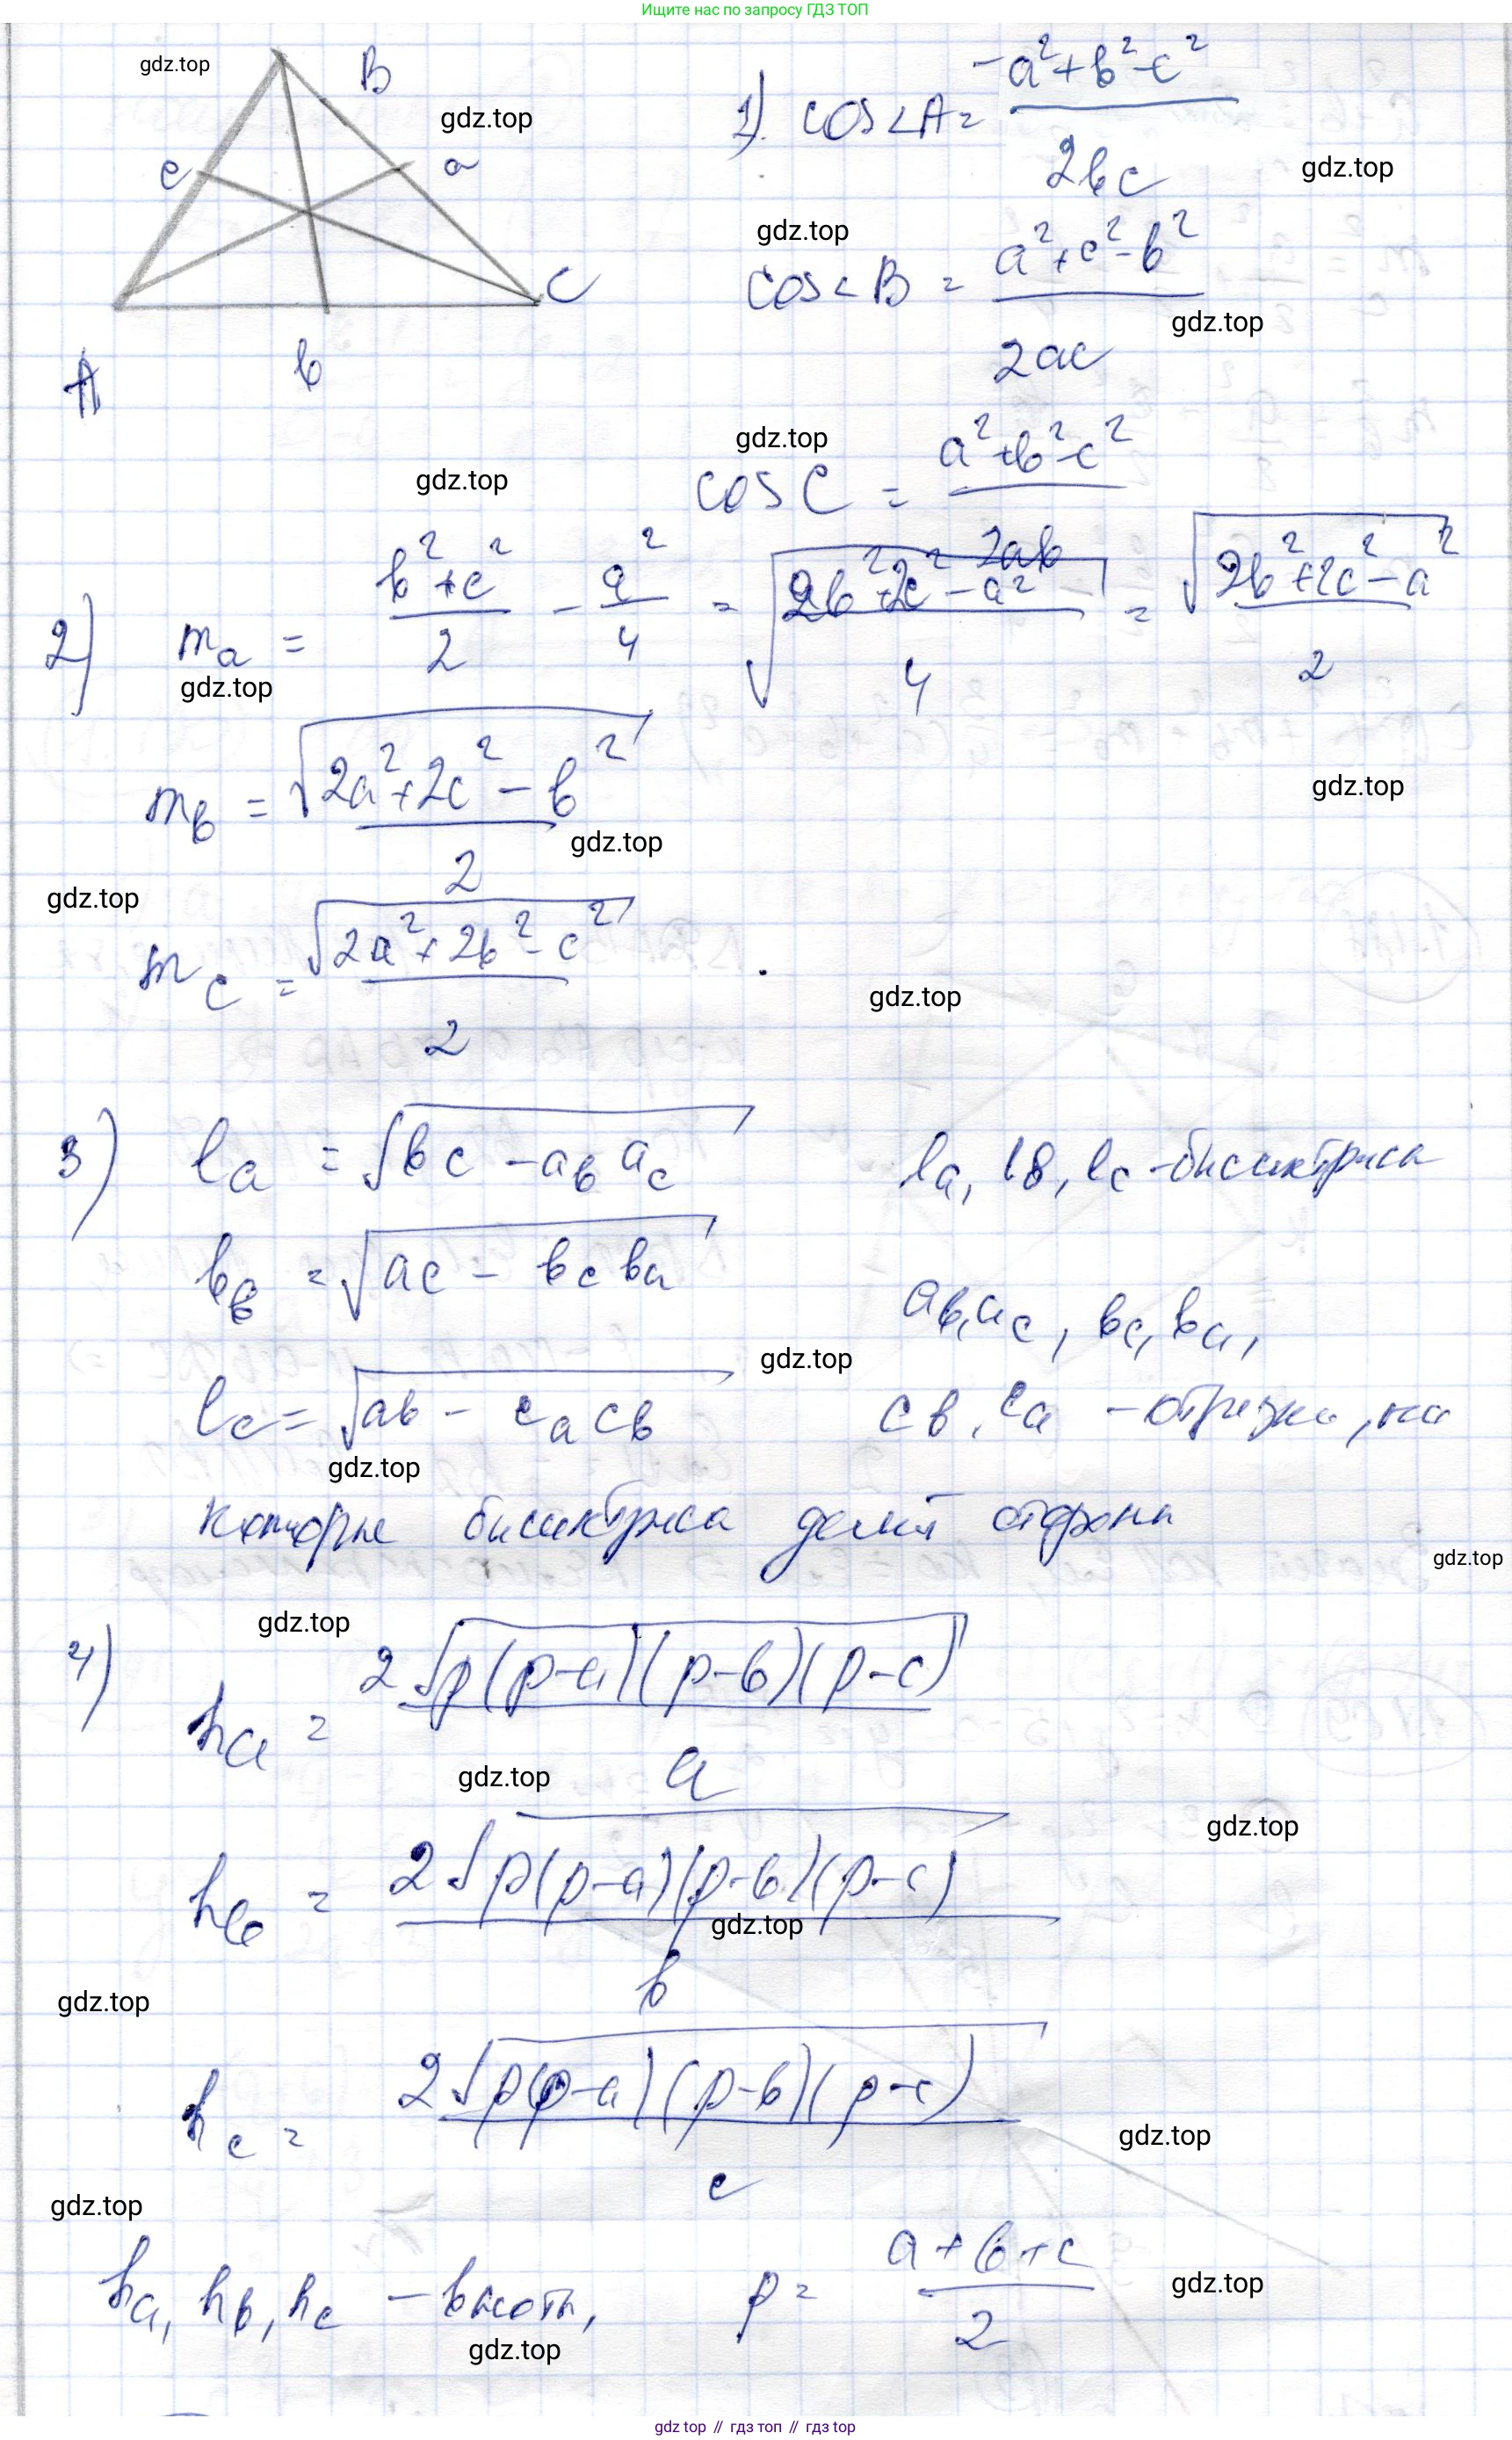 Ищите нас по запросу ГДЗ ТОП
gdz.top
B
gdz.top
c
a
C
A
b
1). cos<A = (-a²+b²-c²)/(2bc)
gdz.top
gdz.top
cos<B = (a²+c²-b²)/(2ac)
gdz.top
gdz.top
gdz.top
cos C = (a²+b²-c²)/(2ab)
2) mₐ = (b²+c²)/2 - a²/4 = √((2b²+2c²-a²)/4) = √(2b²+2c²-a²)/2
gdz.top
gdz.top
m_b = √(2a²+2c²-b²)/2
gdz.top
gdz.top
m_c = √(2a²+2b²-c²)/2
gdz.top
3) lₐ = √(bc - a_b a_c) lₐ, l_в, l_c - биссектриса
l_b = √(ac - b_c bₐ) a_b, a_c, b_c, bₐ,
gdz.top
l_c = √(ab - cₐ c_b) c_b, cₐ - отрезки, на
gdz.top
которые биссектриса делит стороны
gdz.top
gdz.top
4) hₐ = 2√(p(p-a)(p-b)(p-c))/a
gdz.top
gdz.top
h_b = 2√(p(p-a)(p-b)(p-c))/b
gdz.top
gdz.top
h_c = 2√(p(p-a)(p-b)(p-c))/c
gdz.top
gdz.top
hₐ, h_b, h_c - высоты, p = (a+b+c)/2
gdz.top
gdz.top
gdz top // гдз топ // gdz top